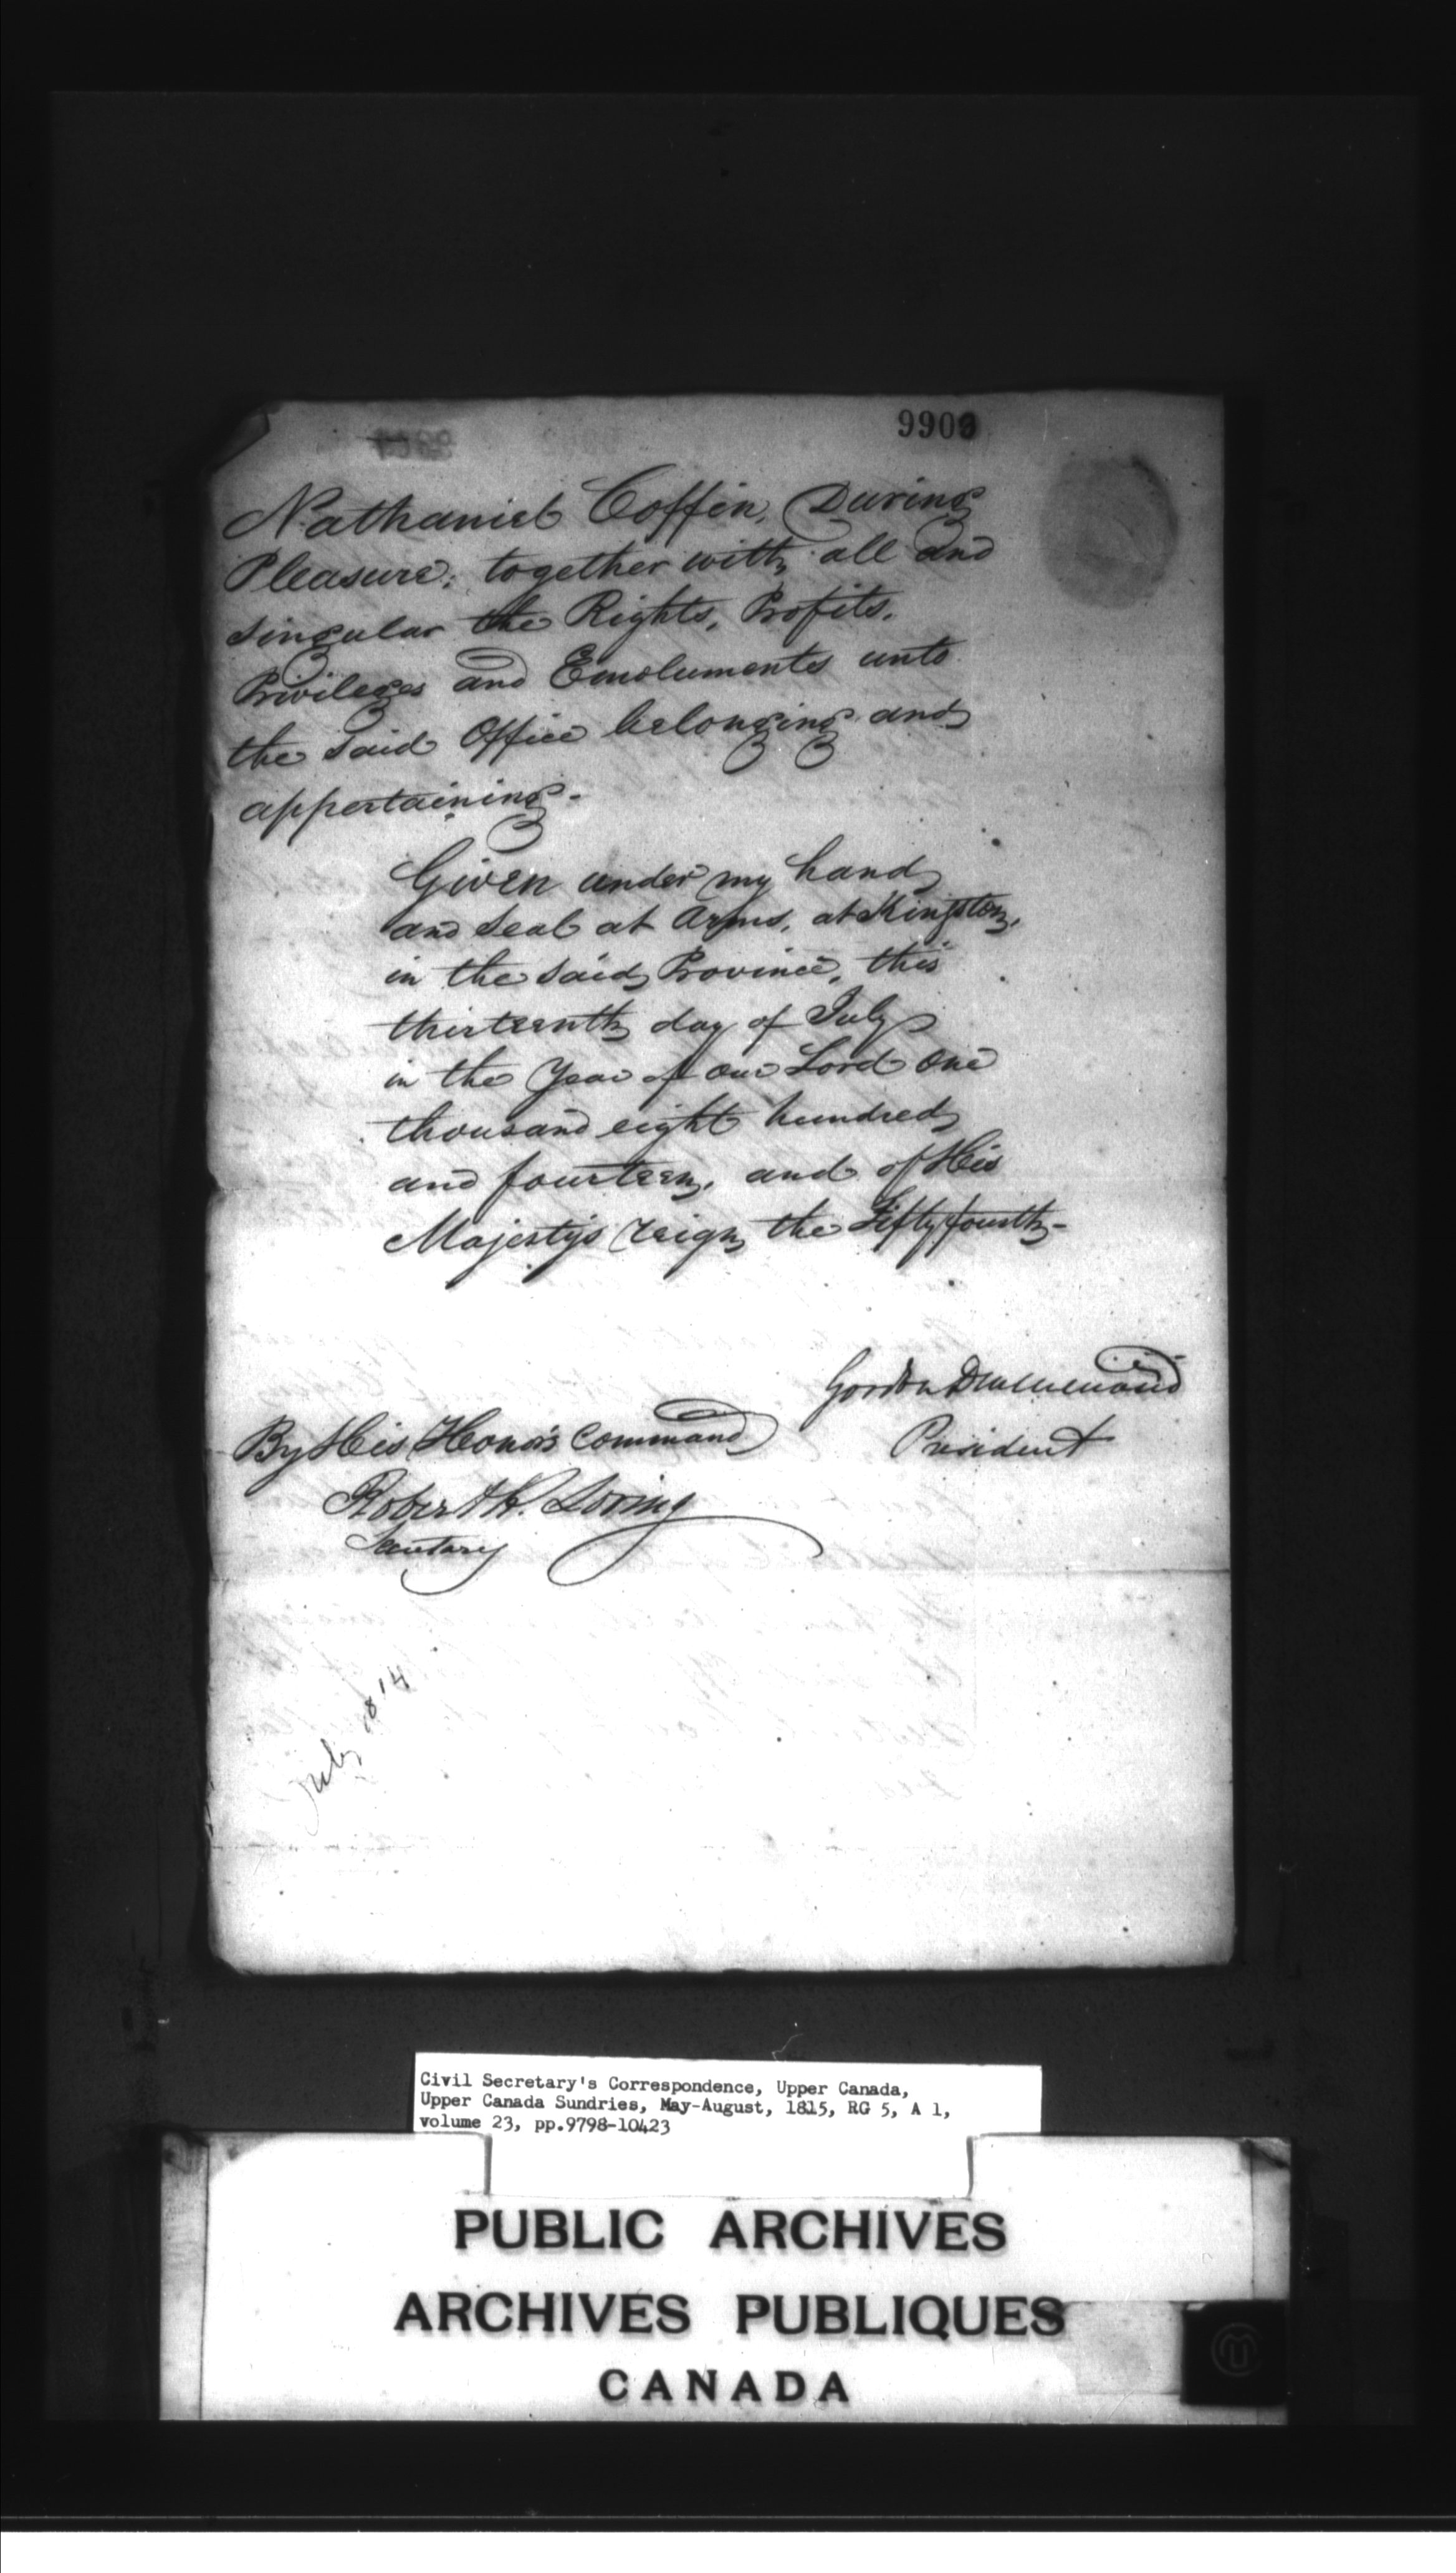 9903
Nathaniel Coffin, During
Pleasure; together with all and
singular the Rights, Profits,
Privileges and Emoluments unto
the said Office belonging and
appertaining.
Given under my hand
and Seal at Arms, at Kingston,
in the said Province, this
thirteenth day of July
in the Year of our Lord One
thousand eight hundred
and fourteen, and of His
Majesty's reign the Fifty fourth-
Gordon Drummond
President
By His Honor's Command
Robert R. Loring
Secretary
July 1814
Civil Secretary's Correspondence, Upper Canada,
Upper Canada Sundries, May-August, 1815, RG 5, A 1,
volume 23, pp.9798-10423
PUBLIC ARCHIVES
ARCHIVES PUBLIQUES
CANADA